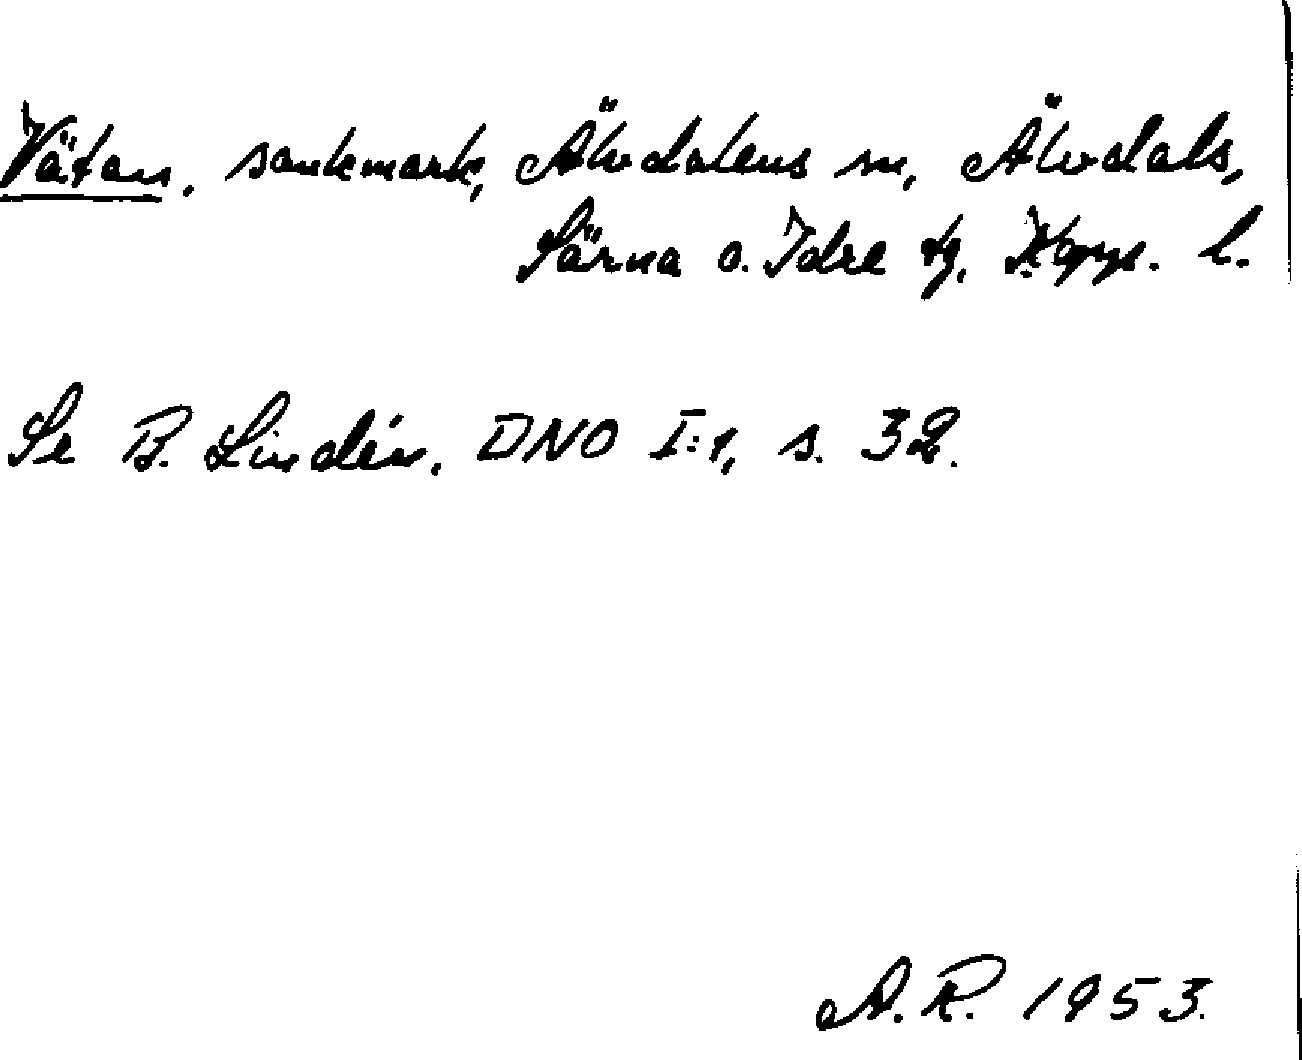 Vätan, sankmark, Älvdalens sn, Älvdals,
Särna o. Idre tg, Kopp. l.
Se B. Lindén, DNO I:1, s. 32.
A.R. 1953.